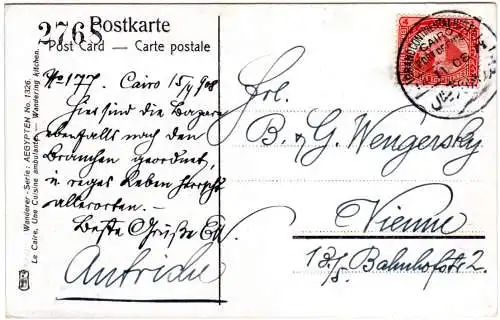 2768
Postkarte
Post Card — Carte postale
Wanderer-Serie: AEGYPTEN No. 1326.
Le Caire, Une Cuisine ambulante. — Wandering kitchen.
No 177. Cairo 15/4 908
Hier sind die Bazare
ebenfalls nach den
Branchen geordnet,
u reges Leben herrscht
allerorten. —
Beste Grüße
Autriche
Frl.
B. & G. Wengersky
Vienne
13/5. Bahnhofstr 2.
CAIRO